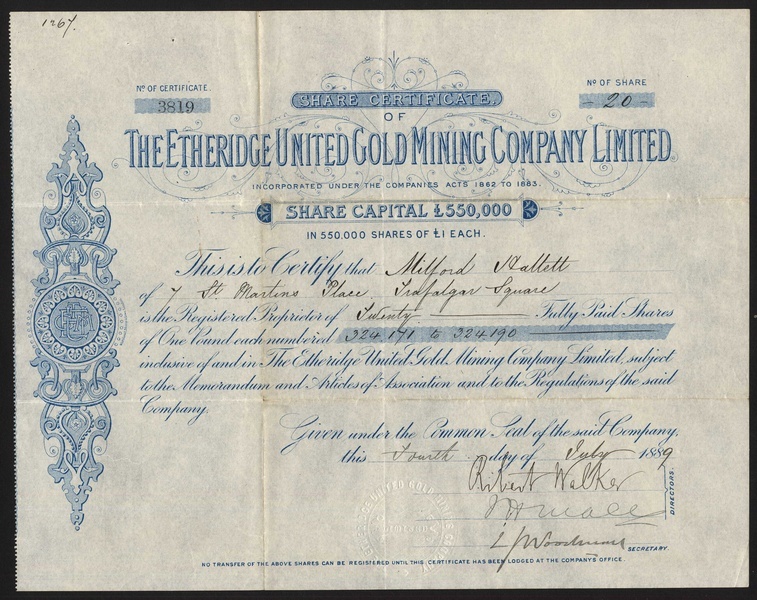 1267.
No OF CERTIFICATE.
3819
No OF SHARE
- 20 -
SHARE CERTIFICATE.
OF
THE ETHERIDGE UNITED GOLD MINING COMPANY LIMITED.
INCORPORATED UNDER THE COMPANIES ACTS 1862 TO 1883.
SHARE CAPITAL £550,000
IN 550.000 SHARES OF £1 EACH.
This is to Certify that Milford Hallett
of 7 St. Martins Place Trafalgar Square
is the Registered Proprietor of Twenty Fully Paid Shares
of One Pound each numbered 324171 to 324190
inclusive of and in The Etheridge United Gold Mining Company Limited, subject
to the Memorandum and Articles of Association and to the Regulations of the said
Company.
Given under the Common Seal of the said Company,
this Fourth day of July 1889
Robert Walker
DIRECTORS.
Woodman
SECRETARY.
NO TRANSFER OF THE ABOVE SHARES CAN BE REGISTERED UNTIL THIS CERTIFICATE HAS BEEN LODGED AT THE COMPANY'S OFFICE.